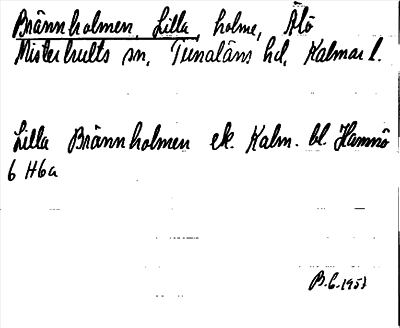 Brännholmen, Lilla, holme, Älö
Misterhults sn, Tunaläns hd, Kalmar l.
Lilla Brännholmen ek. Kalm. bl. Hamnö
6 H6a
B.G. 1951